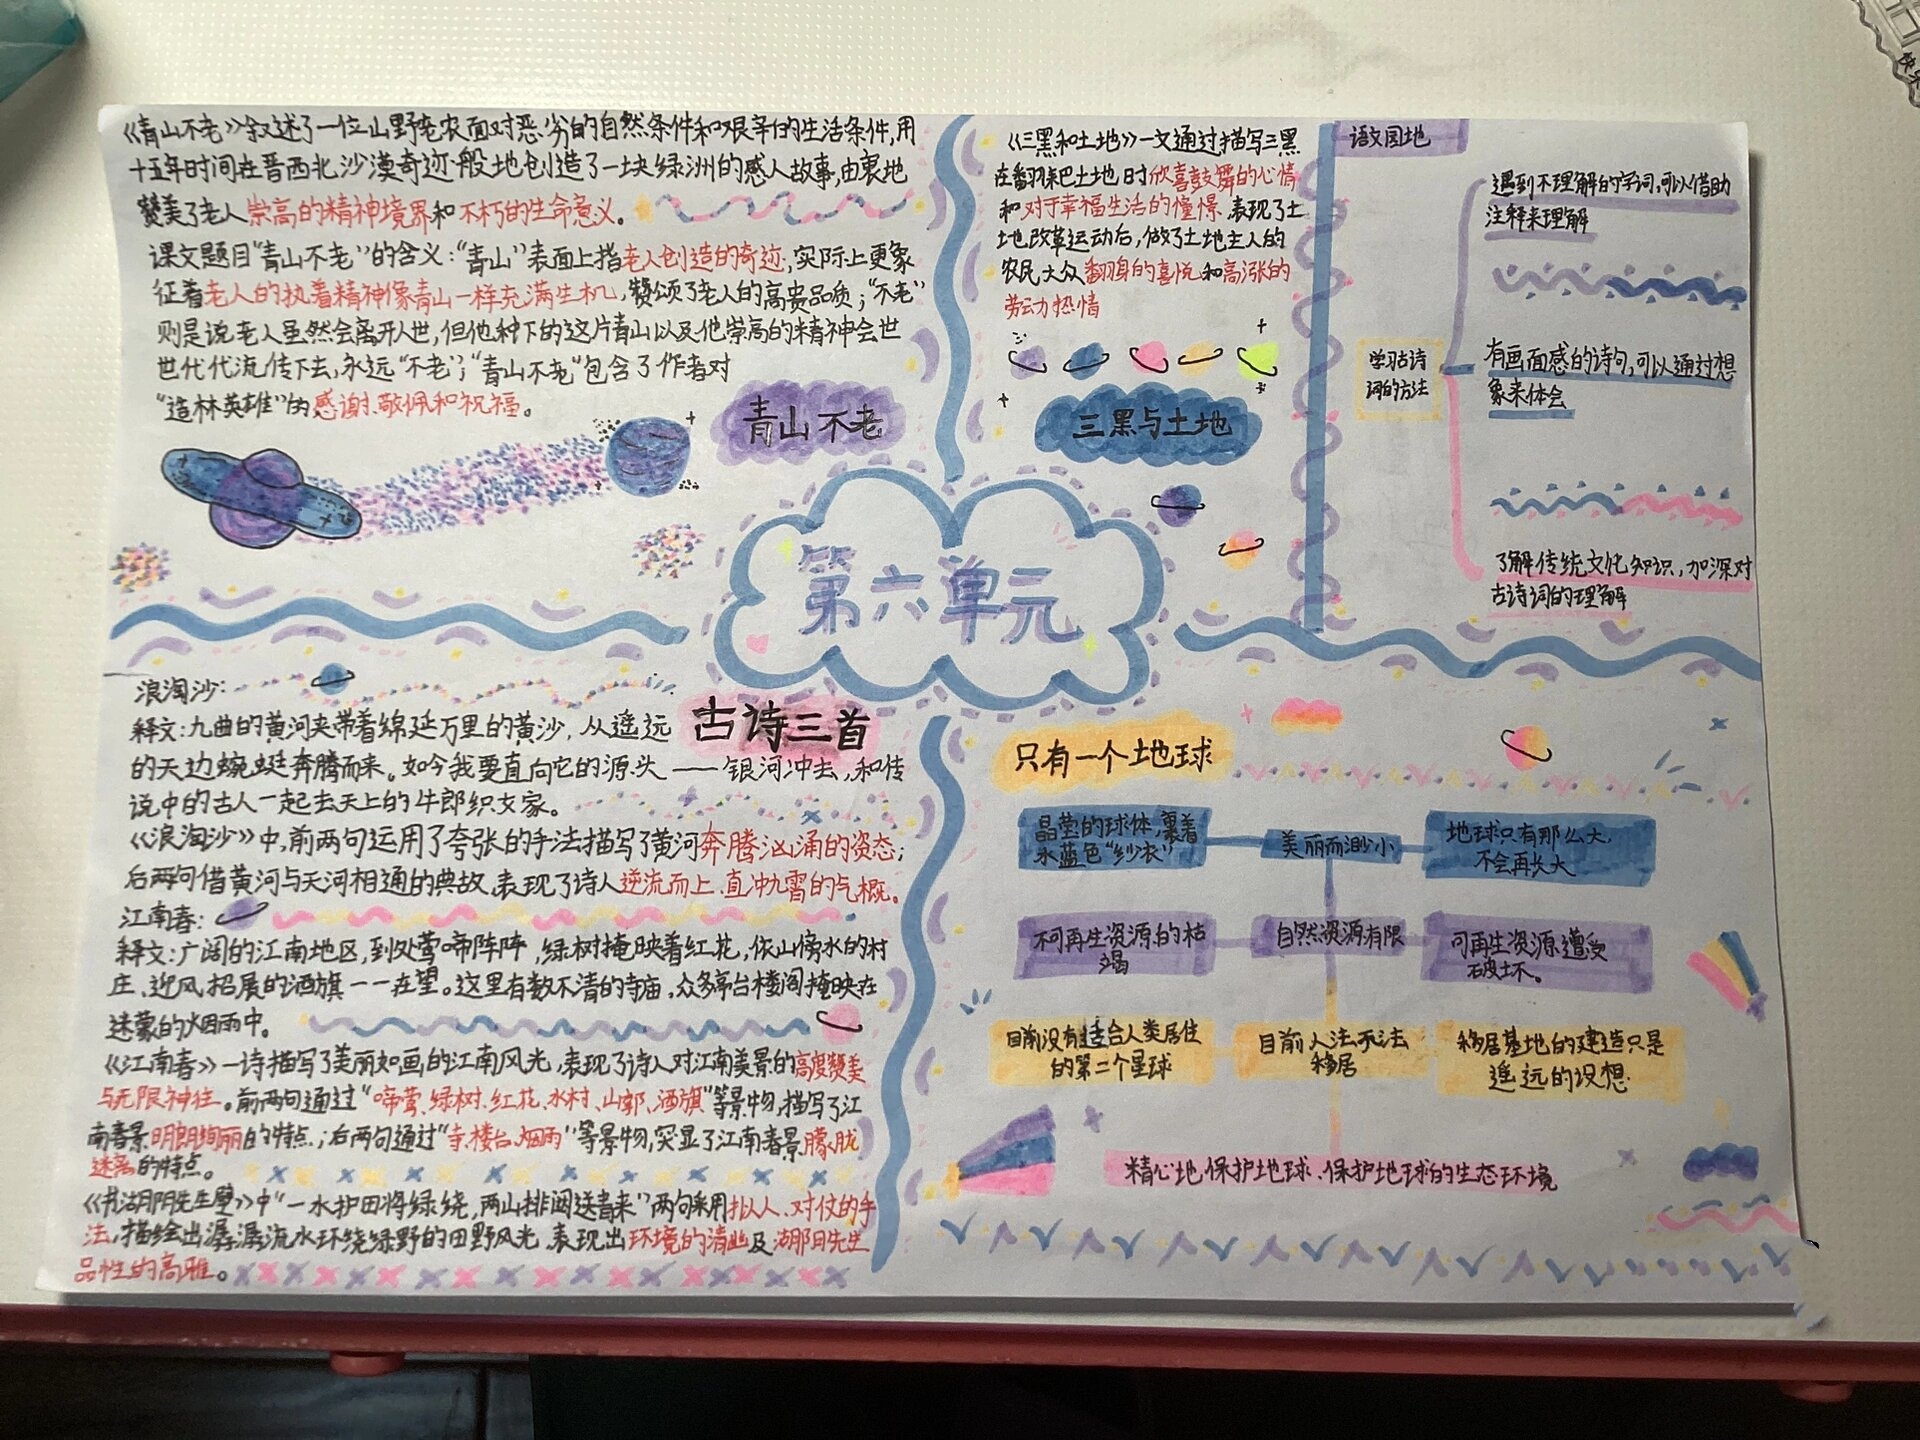 《青山不老》叙述了一位山野老农面对恶劣的自然条件和艰辛的生活条件,用
十五年时间在晋西北沙漠奇迹般地创造了一块绿洲的感人故事,由衷地
赞美了老人崇高的精神境界和不朽的生命意义。
课文题目“青山不老”的含义:“青山”表面上指老人创造的奇迹,实际上更象
征着老人的执着精神像青山一样充满生机,赞颂了老人的高贵品质;“不老”
则是说老人虽然会离开人世,但他种下的这片青山以及他崇高的精神会世
世代代流传下去,永远“不老”;“青山不老”包含了作者对
“造林英雄”的感谢、敬佩和祝福。
青山不老
《三黑和土地》一文通过描写三黑
在翻耕土地时欣喜鼓舞的心情
和对于幸福生活的憧憬,表现了土
地改革运动后,做了土地主人的
农民大众翻身的喜悦和高涨的
劳动热情
三黑与土地
语文园地
学习古诗
词的方法
遇到不理解的字词,可以借助
注释来理解
有画面感的诗句,可以通过想
象来体会
了解传统文化知识,加深对
古诗词的理解
第六单元
古诗三首
浪淘沙:
释文:九曲的黄河夹带着绵延万里的黄沙,从遥远
的天边蜿蜒奔腾而来。如今我要直向它的源头——银河冲去,和传
说中的古人一起去天上的牛郎织女家。
《浪淘沙》中,前两句运用了夸张的手法描写了黄河奔腾汹涌的姿态;
后两句借黄河与天河相通的典故,表现了诗人逆流而上、直冲九霄的气概。
江南春:
释文:广阔的江南地区,到处莺啼阵阵,绿树掩映着红花,依山傍水的村
庄、迎风招展的酒旗一一在望。这里有数不清的寺庙,众多亭台楼阁掩映在
迷蒙的烟雨中。
《江南春》一诗描写了美丽如画的江南风光,表现了诗人对江南美景的高度赞美
与无限神往。前两句通过“啼莺、绿树、红花、水村、山郭、酒旗”等景物,描写了江
南春景明朗绚丽的特点;后两句通过“寺、楼台、烟雨”等景物,突显了江南春景朦胧
迷离的特点。
《书湖阴先生壁》中“一水护田将绿绕,两山排闼送青来”两句采用拟人、对仗的手
法,描绘出潺潺流水环绕绿野的田野风光,表现出环境的清幽及湖阴先生
品性的高雅。
只有一个地球
晶莹的球体,裹着
水蓝色“纱衣”
美丽而渺小
地球只有那么大,
不会再长大
不可再生资源的枯
竭
自然资源有限
可再生资源遭受
破坏。
目前没有适合人类居住
的第二个星球
目前人法无法
移居
移居基地的建造只是
遥远的设想
精心地保护地球、保护地球的生态环境